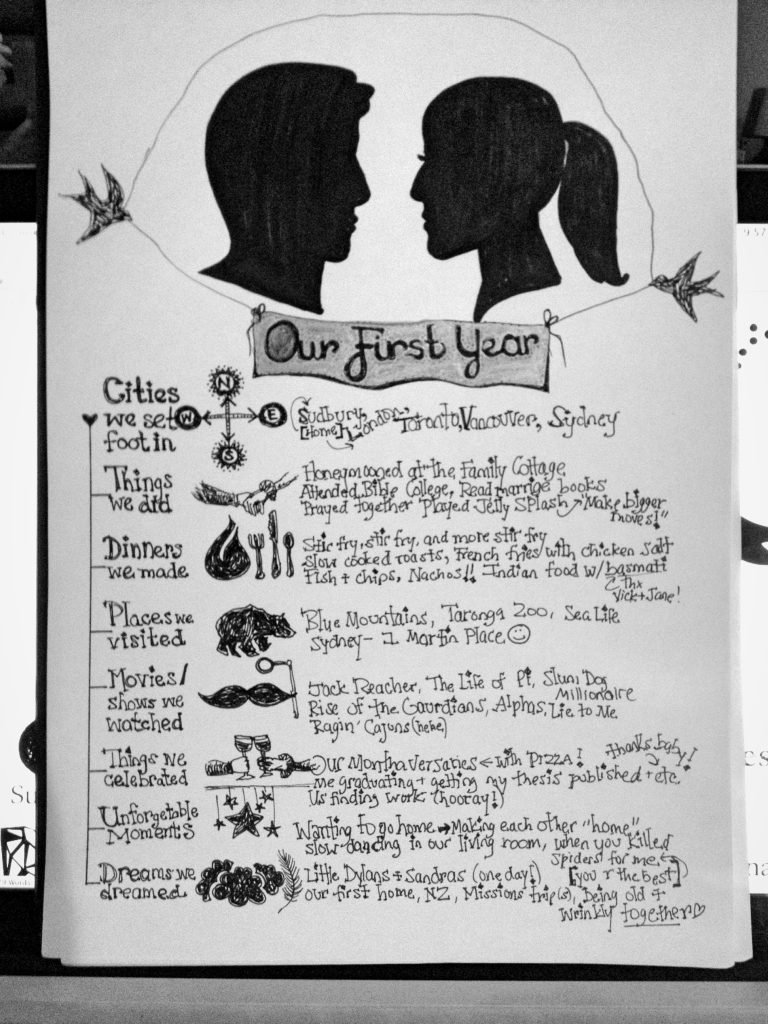 Our First Year
Cities
we set
foot in
N
W
E
S
(Sudbury,
[Home]
London)-Toronto, Vancouver, Sydney
Things
we did
Honeymooned at the Family Cottage,
Attended Bible College, Read marrige books
Prayed together Played Jelly SPLASH "Make bigger
moves!"
Dinners
we made
Stir fry, stir fry, and more stir fry
Slow cooked roasts, French fries with chicken salt
Fish + chips, Nachos!! Indian food w/ basmati
Thx
Vick + Jane!
Places we
visited
Blue Mountains, Taronga Zoo, Sea Life
Sydney - 1 Martin Place
Movies/
shows we
watched
Jack Reacher, The Life of Pi, Slum Dog
Millionaire
Rise of the Gaurdians, Alphas, Lie to Me
Ragin' Cajuns (hehe)
Things we
celebrated
Our Monthaversaries ← with PIZZA!
thanks baby!
me graduating + getting my thesis published + etc.
Us finding work (hooray!)
Unforgetable
Moments
Wanting to go home → Making each other "home"
slow dancing in our living room, when you killed
spiders for me
[you r the best]
Dreams we
dreamed
Little Dylans + Sandras (one day!)
our first home, NZ, Missions trip(s), being old +
wrinkly together
9 57
Su
9 Words